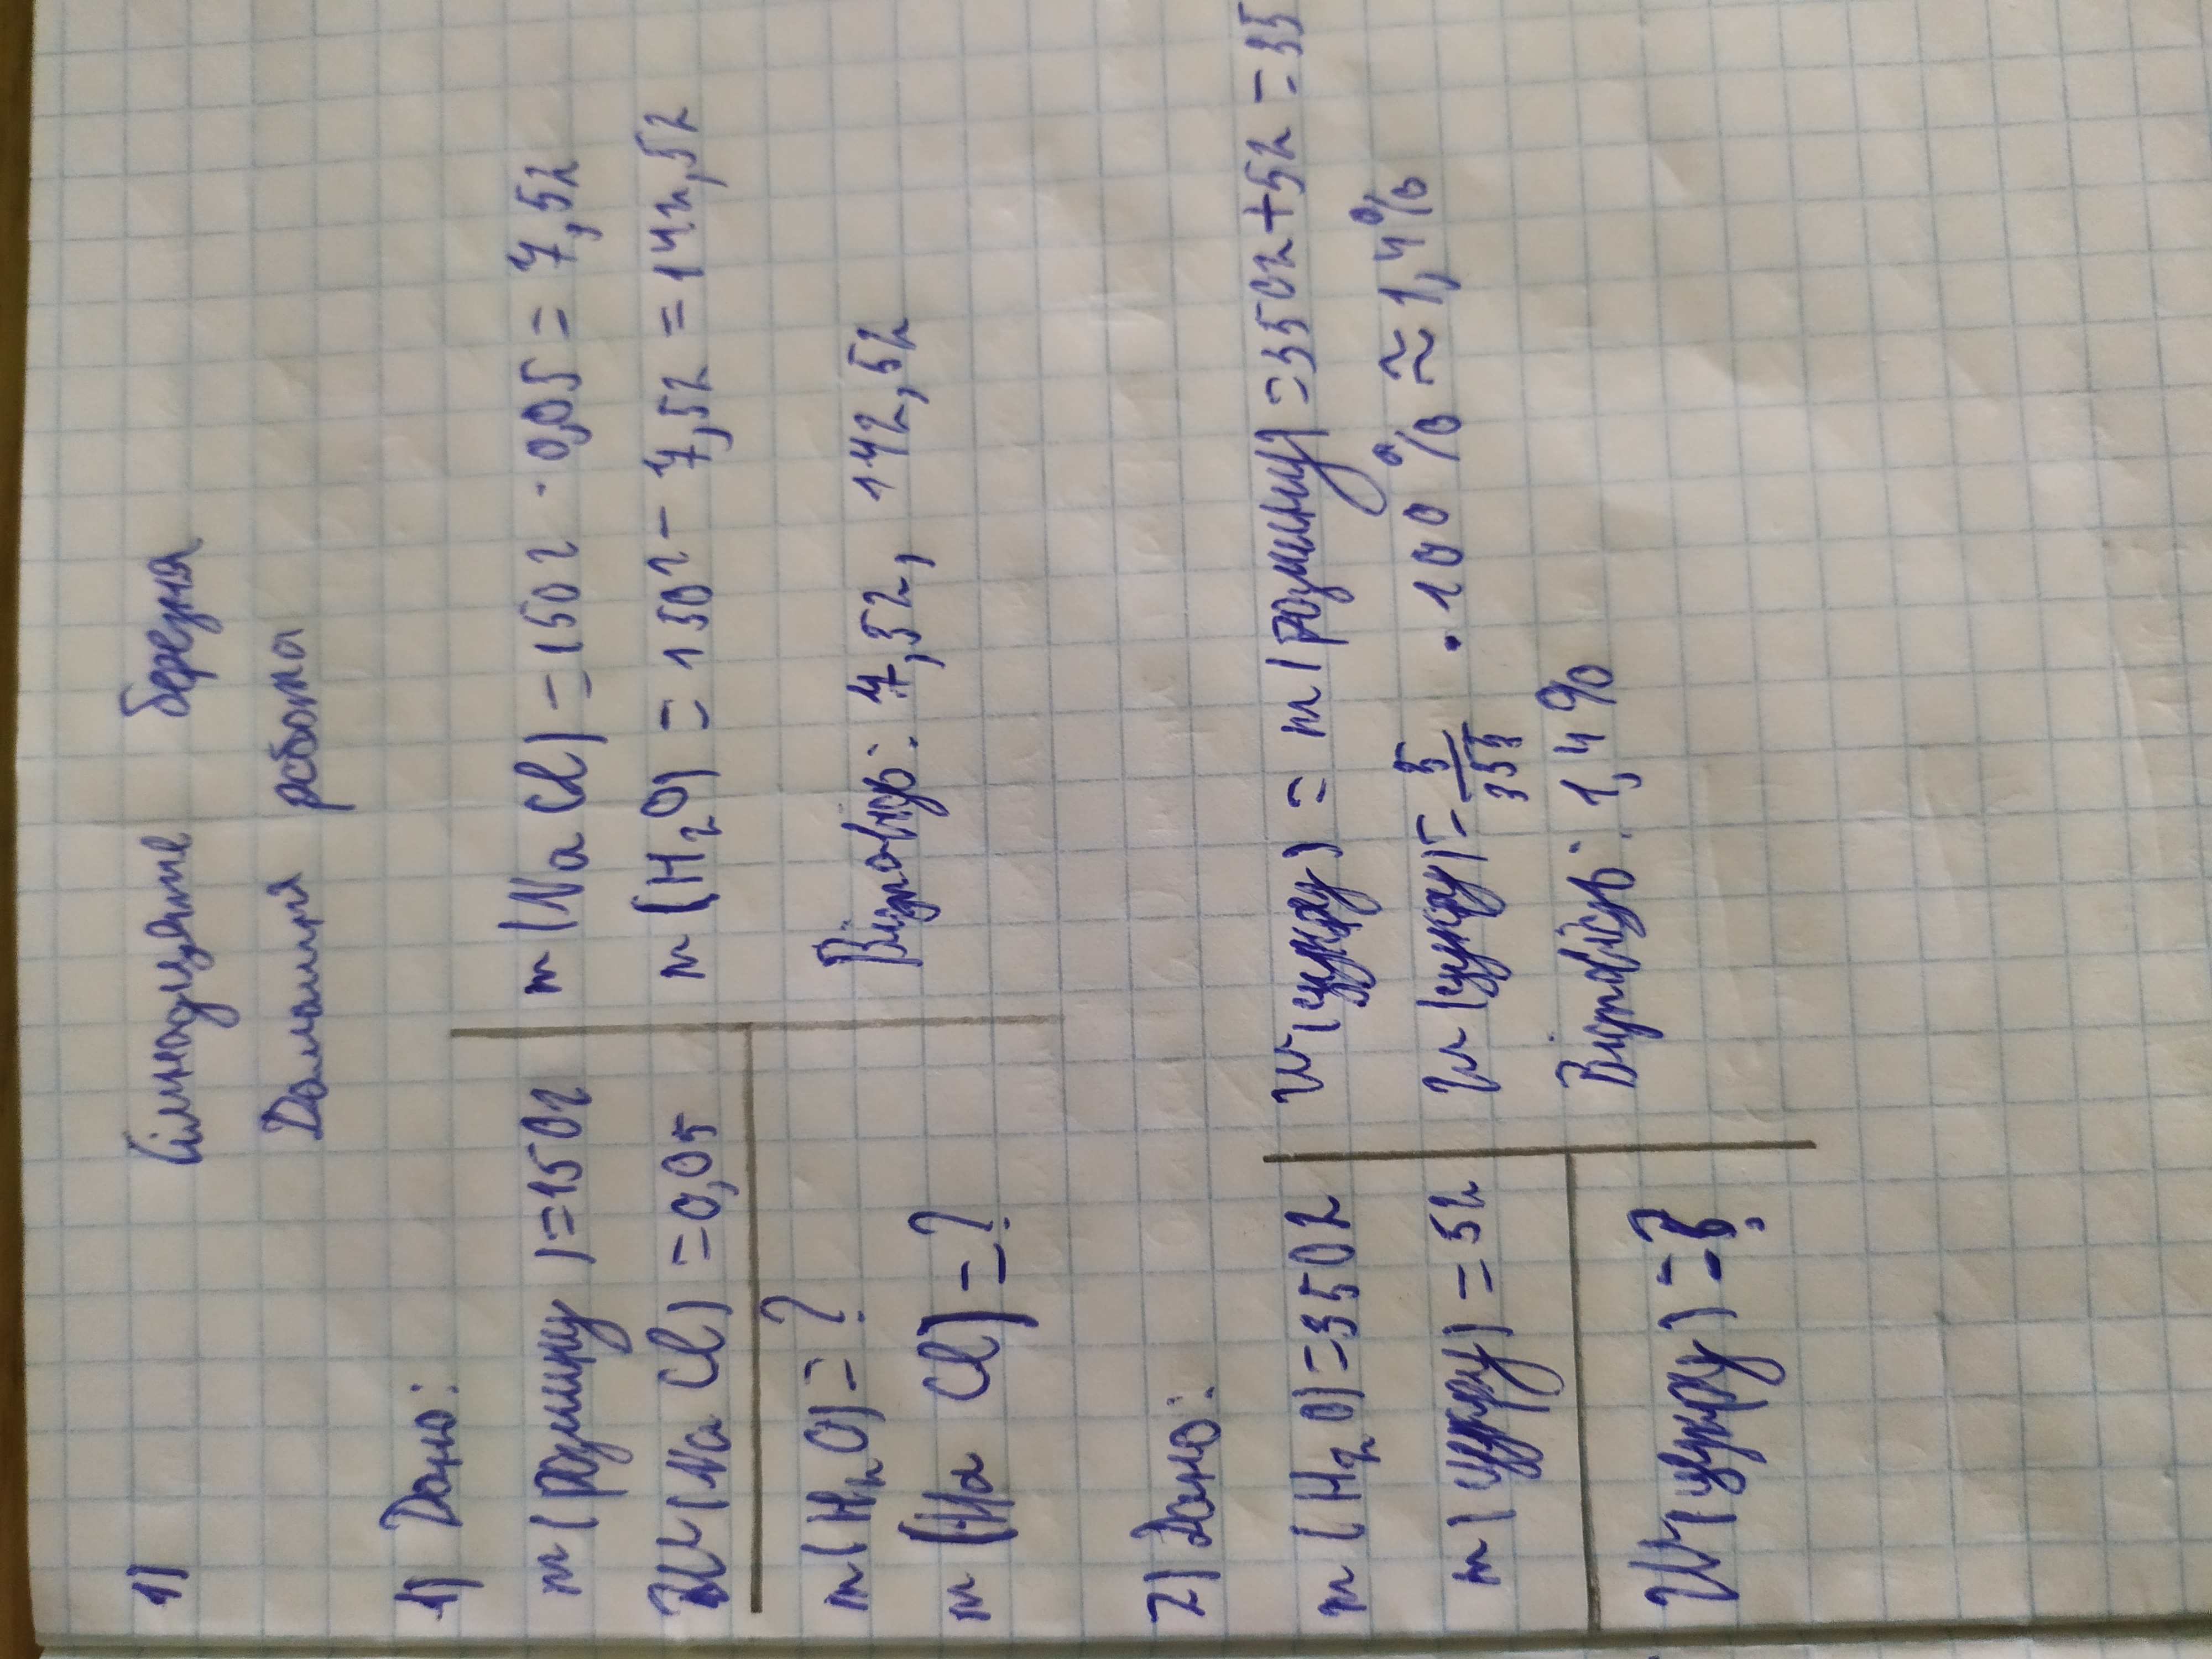 Сімнадцяте березня
Домашня робота
1)
1) Дано:
m(розчину)=150г
W(NaCl)=0,05
m(H2O)=?
m(NaCl)=?
m(NaCl)=150г·0,05=7,5г
m(H2O)=150г-7,5г=142,5г
Відповідь: 7,5г, 142,5г
2) Дано:
m(H2O)=350г
m(цукру)=5г
W(цукру)=?
W(цукру)=m(розчину)=350г+5г=35
W(цукру)=5/355·100%≈1,4%
Відповідь: 1,4%